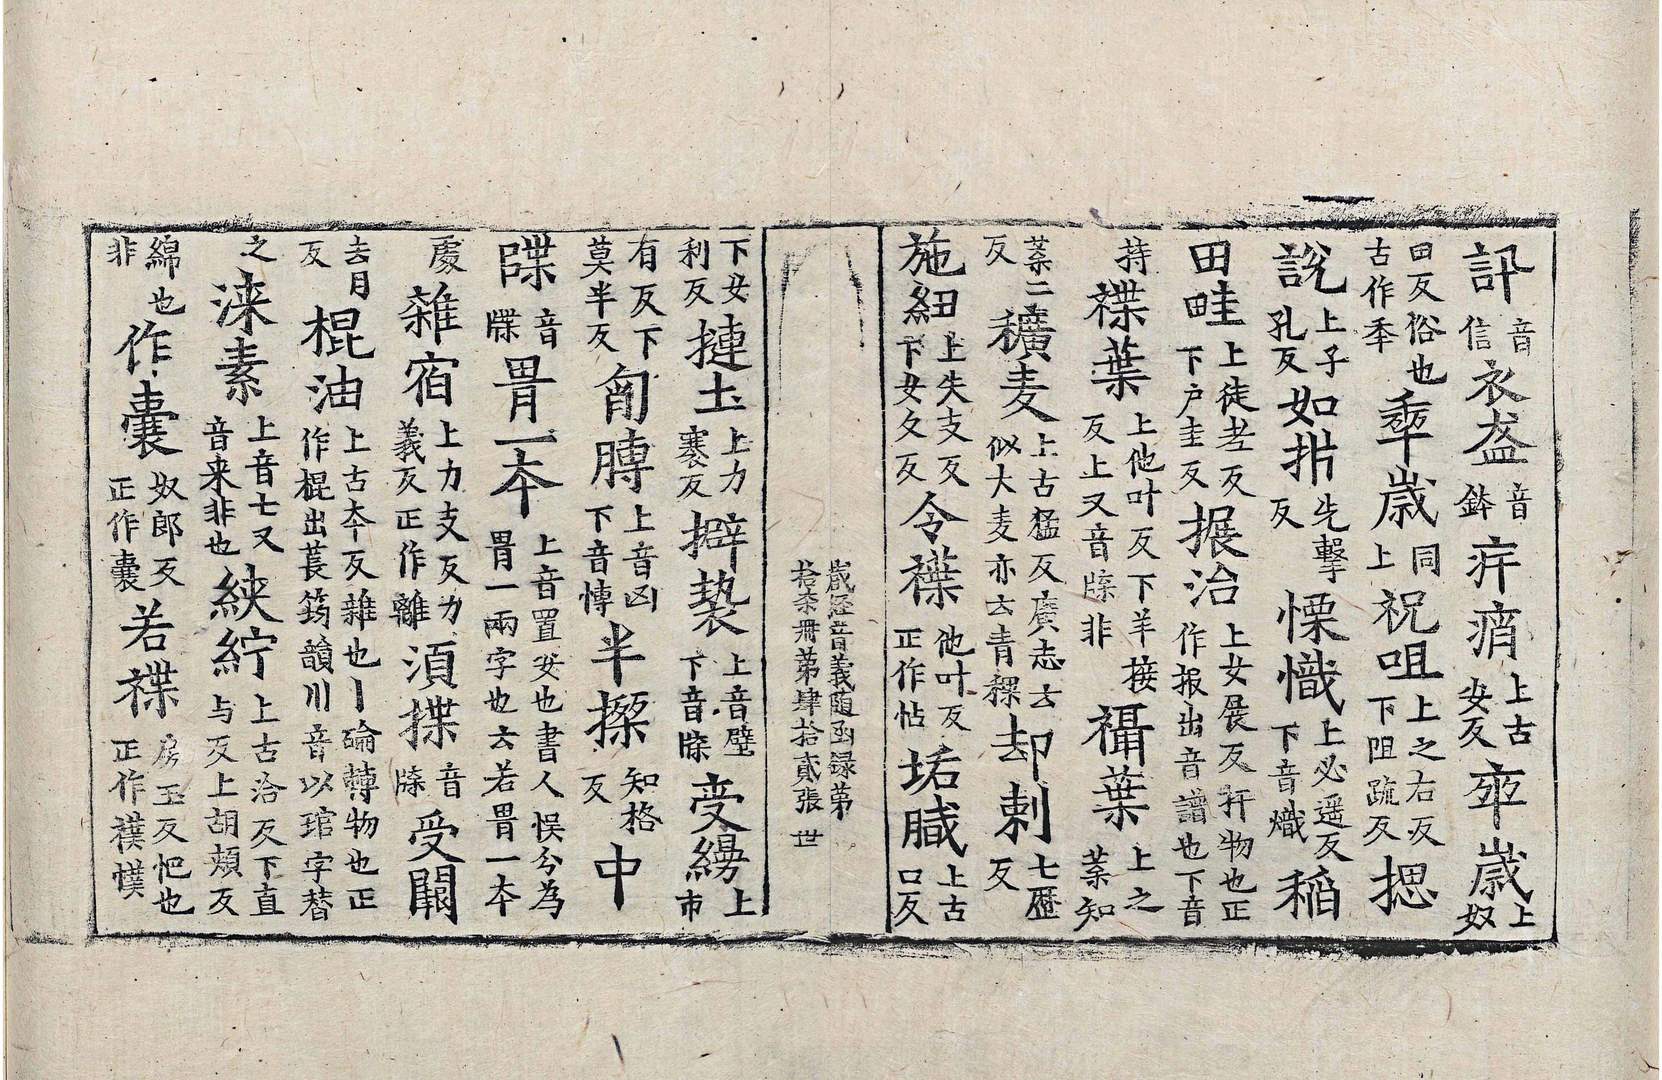 訊音信衣盋音鉢疜痟上古安反㐼歲上奴
田反俗也古作秊秊歲同上祝咀上之右反下阻䟽反揌
說上子孔反如㭊先擊反慄懺上必遥反下音熾稲
田畦上徒年反下户圭反搌治上女展反扞物也正作报出音譜也下音
持褋葉上他叶反下羊接反上又音牒非褔葉上之葉知
葉二反穬麦上古猛反廣志云似大麦亦云青稞却剌七歷反
施紐上失支反下女夂反令褋他叶反正作怗垢膱上古口反
藏経音義随函録第拾柒冊第肆拾貳張 世
下女利反摙土上力蹇反擗褺上音壁下音牒受㜃上市
有反下莫半反匈膞上音凶下音慱半搩知格反中
𨻧音牒罥一夲上音置安也書人悮分為罥一兩字也云若罥一夲
處雜宿上力支反力義反正作離湏揲音牒受闘
去月反棍油上古夲反雜也丨論轉物也正作棍出萇筠韻川音以琯字替
之涞素上音七又音来非也綊紵上古洽反下直与反上胡頬反
綿也非作囊奴郎反正作囊若襆房玉反帊也正作襆幞